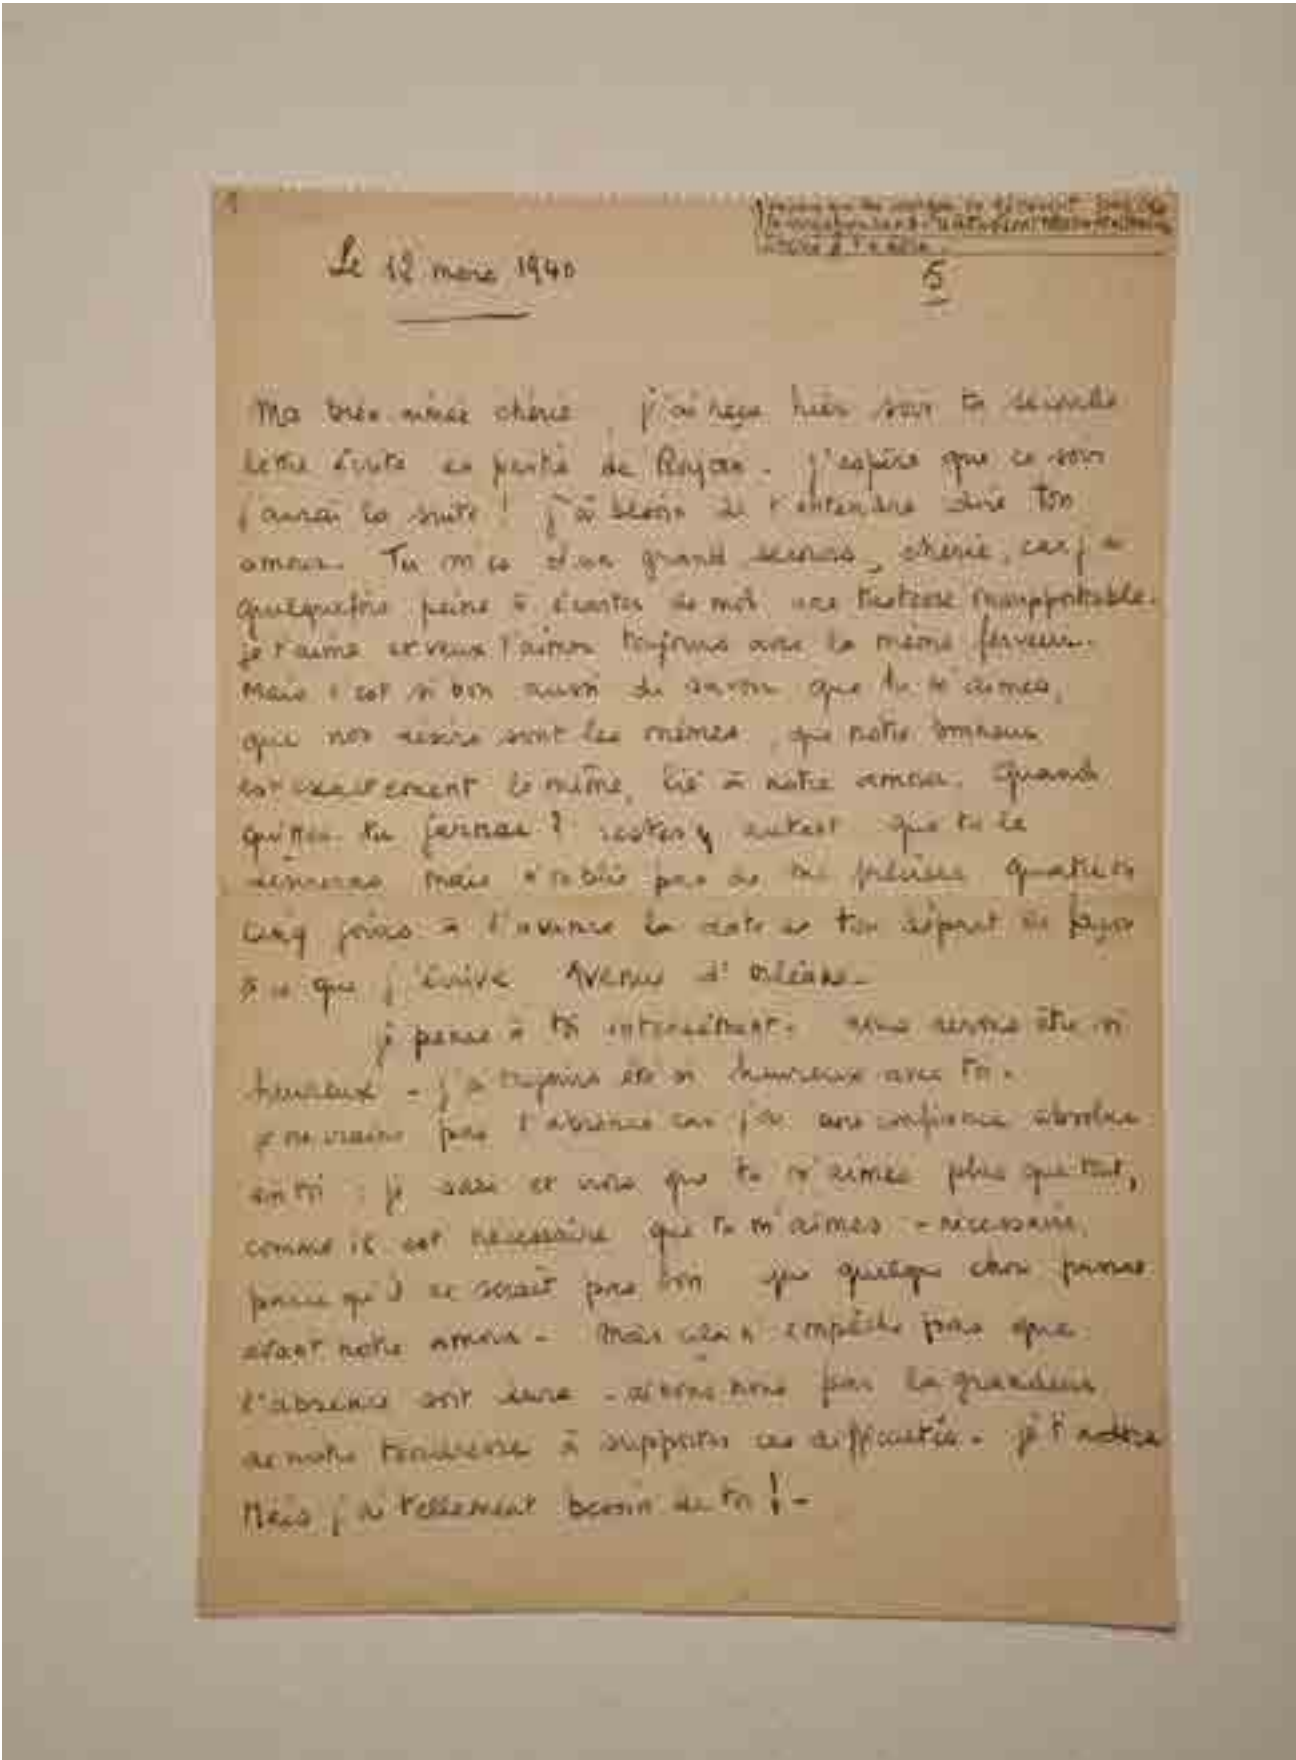 1
Le 12 mars 1940
5
Ma très aimée chérie, j'ai reçu hier soir ta seconde
lettre écrite en partie de Royan. J'espère que ce soir
j'aurai la suite ! J'ai besoin de t'entendre dire ton
amour. Tu m'es d'un grand secours, chérie, car j'ai
quelquefois peine à écarter de moi une tristesse insupportable.
je t'aime et veux t'aimer toujours avec la même ferveur.
Mais c'est si bon aussi de savoir que tu m'aimes,
que nos désirs sont les mêmes, que notre bonheur
est exactement le même, lié à notre amour. Quand
quittes-tu Jarnac ? restes y autant que tu le
désireras mais n'oublie pas de me préciser quatre à
cinq jours à l'avance la date de ton départ de façon
à ce que j'écrive Avenue d'Orléans.
je pense à toi intensément. nous devons être si
heureux - j'ai toujours été si heureux avec toi.
je ne crains pas l'absence car j'ai une confiance absolue
en toi : je sais et crois que tu m'aimes plus que tout,
comme il est nécessaire que tu m'aimes - nécessaire,
parce qu'il ne serait pas bon que quelque chose passe
avant notre amour - Mais cela n'empêche pas que
l'absence soit dure - aidons nous par la grandeur
de notre tendresse à supporter ces difficultés - je t'adore
Mais j'ai tellement besoin de toi ! -